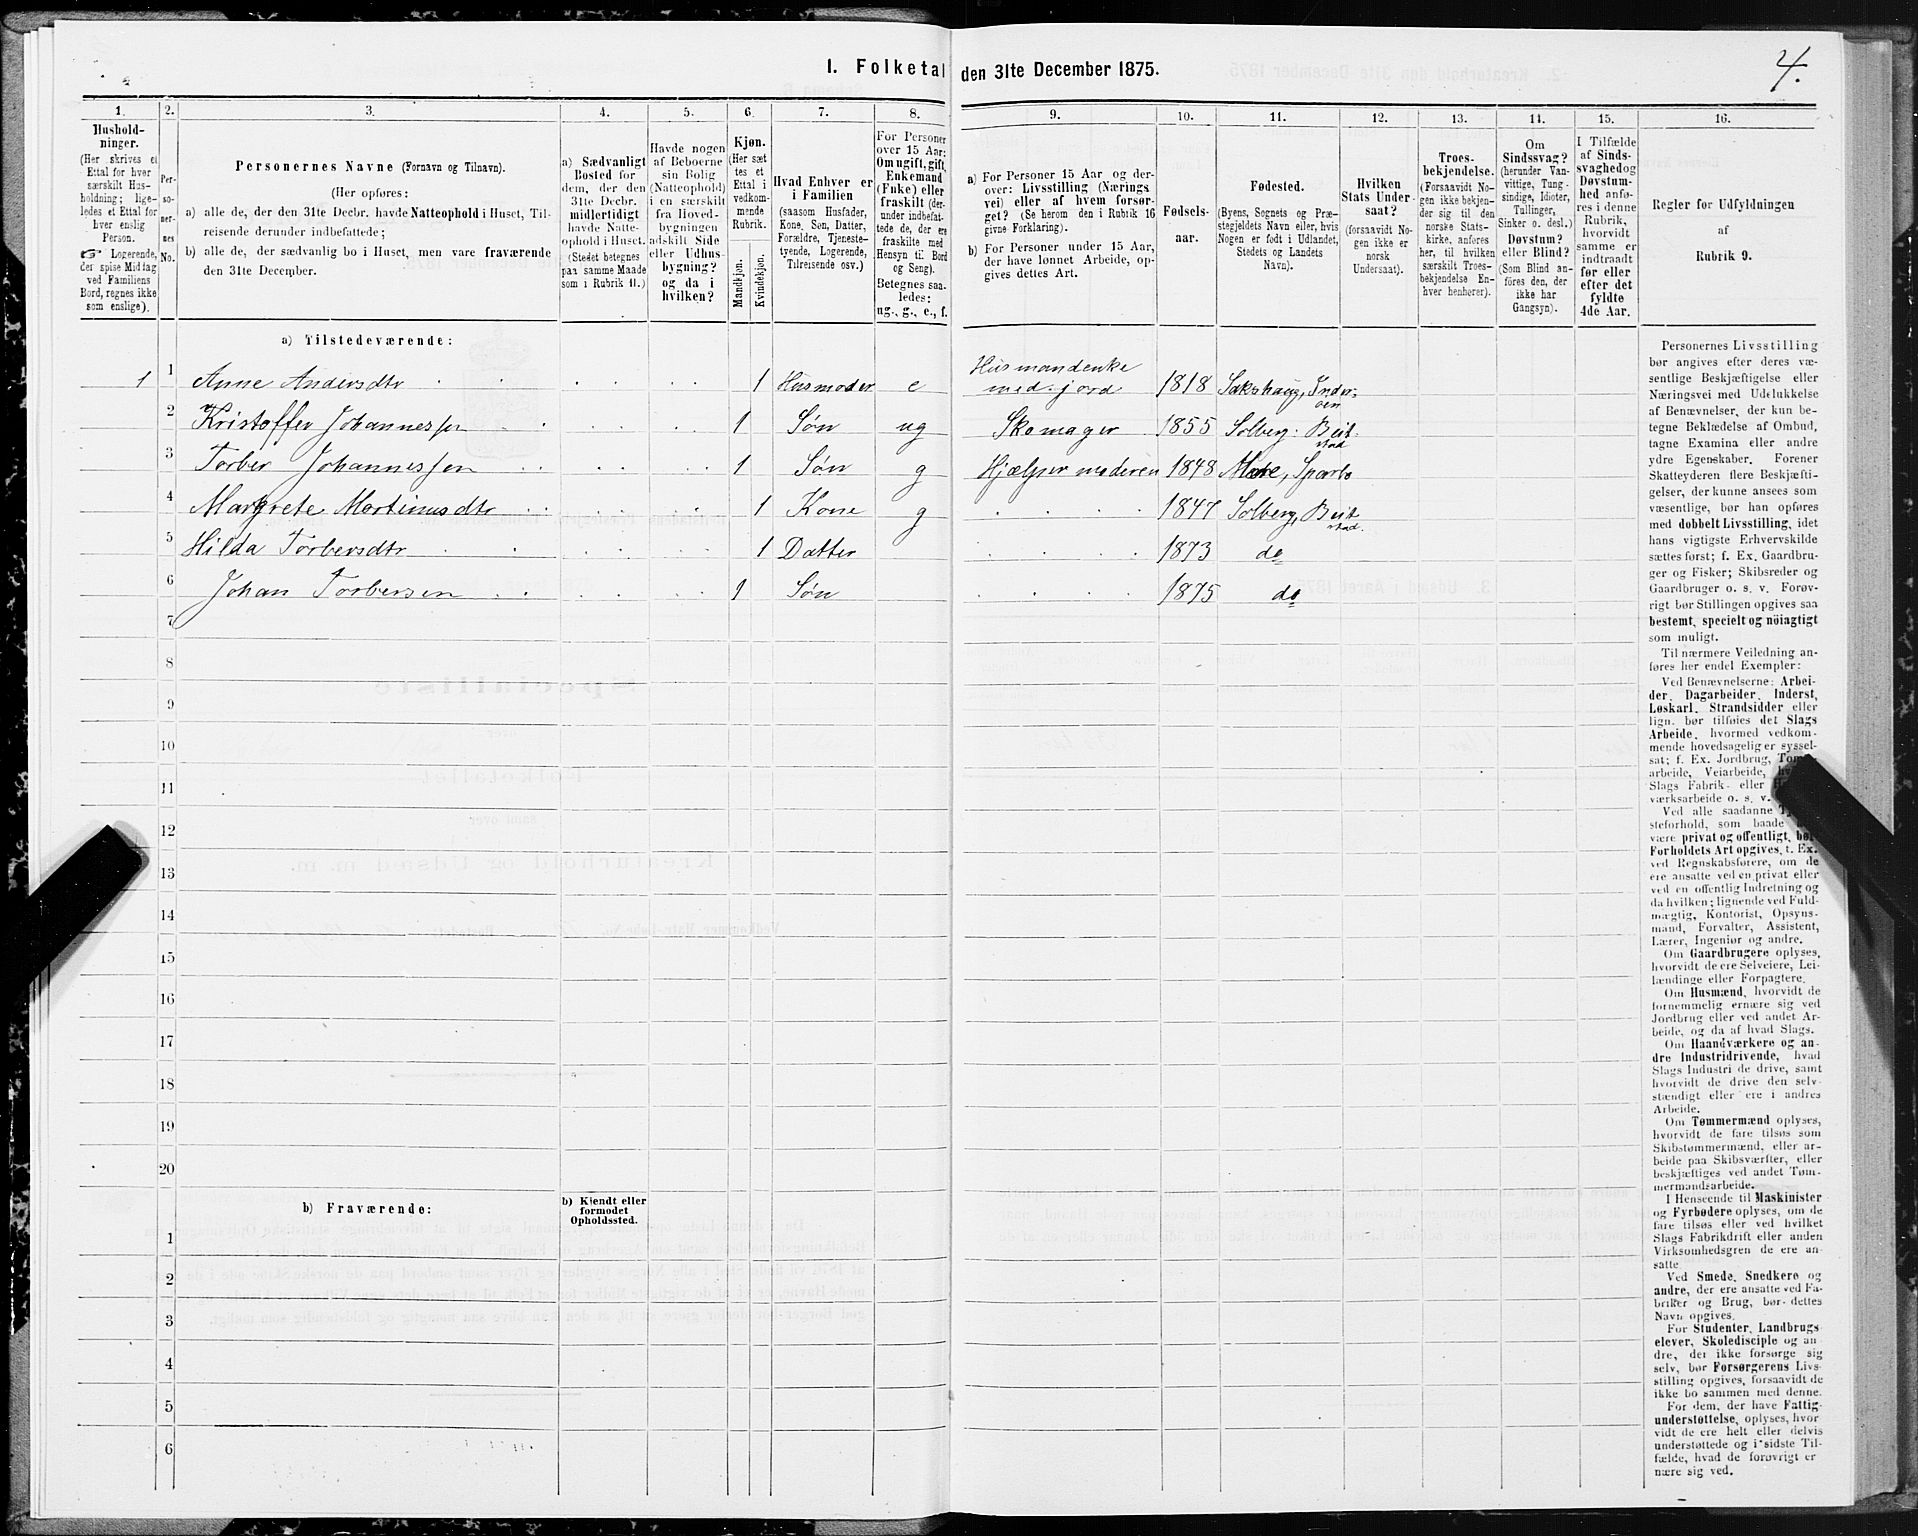 4.
I. Folketal den 31te December 1875.
1. 2. 3. 4. 5. 6. 7. 8. 9. 10. 11. 12. 13. 14. 15. 16.
Hushold-
ninger.
(Her skrives et
Ettal for hver
særskilt Hus-
holdning; lige-
ledes et Ettal for
hver enslig
Person.
☞ Logerende,
der spise Middag
ved Familiens
Bord, regnes ikke
som enslige).
Per-
so-
ner-
nes
No.
Personernes Navne (Fornavn og Tilnavn).
(Her opføres:
a) alle de, der den 31te Decbr. havde Natteophold i Huset, Til-
reisende derunder indbefattede;
b) alle de, der sædvanlig bo i Huset, men vare fraværende
den 31te December.
a) Sædvanligt
Bosted for
dem, der den
31te Decbr.
midlertidigt
havde Natte-
ophold i Huset.
(Stedet betegnes
paa samme Maade
som i Rubrik 11.)
Havde nogen
af Beboerne
sin Bolig
(Natteophold)
i en særskilt
fra Hoved-
bygningen
adskilt Side
eller Udhus-
bygning?
og da i
hvilken?
Kjøn.
(Her sæt
tes et
Ettal i
vedkom-
mende
Rubrik.
Mandkjøn.
Kvindekjøn.
Hvad Enhver er
i Familien
(saasom Husfader,
Kone, Søn, Datter,
Forældre, Tjeneste-
tyende, Logerende,
Tilreisende osv.)
For Personer
over 15 Aar:
Om ugift, gift,
Enkemand
(Enke) eller
fraskilt (der-
under indbefat-
tede de, der ere
fraskilte med
Hensyn til Bord
og Seng).
Betegnes saa-
ledes:
ug., g., e., f.
a) For Personer 15 Aar og der-
over: Livsstilling (Nærings
vei) eller af hvem forsør-
get? (Se herom den i Rubrik 16
givne Forklaring).
b) For Personer under 15 Aar,
der have lønnet Arbeide, op-
gives dettes Art.
Fødsels-
aar.
Fødested.
(Byens, Sognets og Præ-
stegjeldets Navn eller, hvis
Nogen er født i Udlandet,
Stedets og Landets
Navn).
Hvilken
Stats Under-
saat?
(foraavidt No-
gen ikke er
norsk
Undersaat).
Troes-
bekjendelse.
(Forsaavidt No-
gen ikke bekjen-
der sig til den
norske Stats-
kirke, anføres
her, til hvilken
særskilt Troes-
bekjendelse En-
hver henhører).
Om
Sindssvag?
(herunder Van-
vittige, Tung-
sindige, Idioter,
Tullinger,
Sinker o. desl.)
Døvstum?
eller Blind?
(Som Blind an-
føres den, der
ikke har
Gangsyn).
I Tilfælde
af Sinds-
svaghed og
Døvstum-
hed anfø-
res i denne
Rubrik,
hvorvidt
samme er
indtraadt
før eller
efter det
fyldte
4de Aar.
Regler for Udfyldningen
af
Rubrik 9.
a) Tilstedeværende:
1 1 Anne Andersdtr 1 Husmoder e Husmandenke med jord 1818 Sakshaug, Inderøen
2 Kristoffer Johannessen 1 Søn ug Skomager 1855 Solberg: Beitstad
3 Torber Johannessen 1 Søn g Hjælper moderen 1848 Mære, Sparbo
4 Margrete Martinusdtr 1 Kone g 1847 Solberg, Beitstad.
5 Hilda Torbersdtr 1 Datter 1873 do
6 Johan Torbersen 1 Søn 1875 do
7
8
9
10
11
12
13
14
15
16
17
18
19
20
b) Fraværende:
b) Kjendt eller
formodet
Opholdssted.
1
2
3
4
5
6
Personernes Livsstilling
bør angives efter deres væ-
sentlige Beskjæftigelse eller
Næringsvei med Udelukkelse
af Benævnelser, der kun be-
tegne Beklædelse af Ombud,
tagne Examina eller andre
ydre Egenskaber. Forener
Skatteyderen flere Beskjæfti-
gelser, der kunne ansees som
væsentlige, bør han opføres
med dobbelt Livsstilling, idet
hans vigtigste Erhvervskilde
sættes først; f. Ex. Gaardbru-
ger og Fisker; Skibsreder og
Gaardbruger o. s. v. Forøv-
rigt bør Stillingen opgives saa
bestemt, specielt og nöiagtigt
som muligt.
Til nærmere Veiledning an-
føres her endel Exempler:
Ved Benævnelserne: Arbei-
der, Dagarbeider, Inderst,
Løskarl, Strandsidder eller
lign. bør tilføies det Slags
Arbeide, hvormed vedkom-
mende hovedsagelig er syssel-
sat; f. Ex. Jordbrug, Tøm-
arbeide, Veiarbeide,
Slags Fabrik- eller
værksarbeide o. s. v.
Ved alle saadanne
steforhold, som baade
være privat og offentligt, bør
Forholdets Art opgives, f. Ex.
ved Regnskabsførere, om de
ere ansatte ved en privat eller
ved en offentlig Indretning og
da hvilken; lignende ved Fuld-
mægtig, Kontorist, Opsyns-
mand, Forvalter, Assistent,
Lærer, Ingeniør og andre.
Om Gaardbrugere oplyses,
hvorvidt de ere Selveiere, Lei-
lændinge eller Forpagtere.
Om Husmænd, hvorvidt de
fornemmelig ernære sig ved
Jordbrug eller ved andet Ar-
beide, og da af hvad Slags.
Om Haandværkere og an-
dre Industridrivende, hvad
Slags Industri de drive, samt
hvorvidt de drive den selv-
stændigt eller ere i andres
Arbeide.
Om Tømmermænd oplyses,
hvorvidt de fare tilsøs som
Skibstømmermænd, eller ar-
beide paa Skibsværfter, eller
beskjæftiges ved andet Tøm-
mermandsarbeide.
I Henseende til Maskinister
og Fyrbødere oplyses, om de
fare tilsøs eller ved hvilket
Slags Fabrikdrift eller anden
Virksomhedsgren de ere an-
satte.
Ved Smede, Snedkere og
andre, der ere ansatte ved Fa-
briker og Brug, bør dettes
Navn opgives.
For Studenter, Landbrugs
elever, Skoledisciple og an-
dre, der ikke forsørge sig
selv, bør Forsørgerens Livs-
stilling opgives, forsaavidt de
ikke bo sammen med denne.
For dem, der have Fattig-
understøttelse, oplyses, hvor
vidt de ere helt eller delvis
understøttede og i sidste Til-
fælde, hvad de forøvrigt er
nære sig ved.